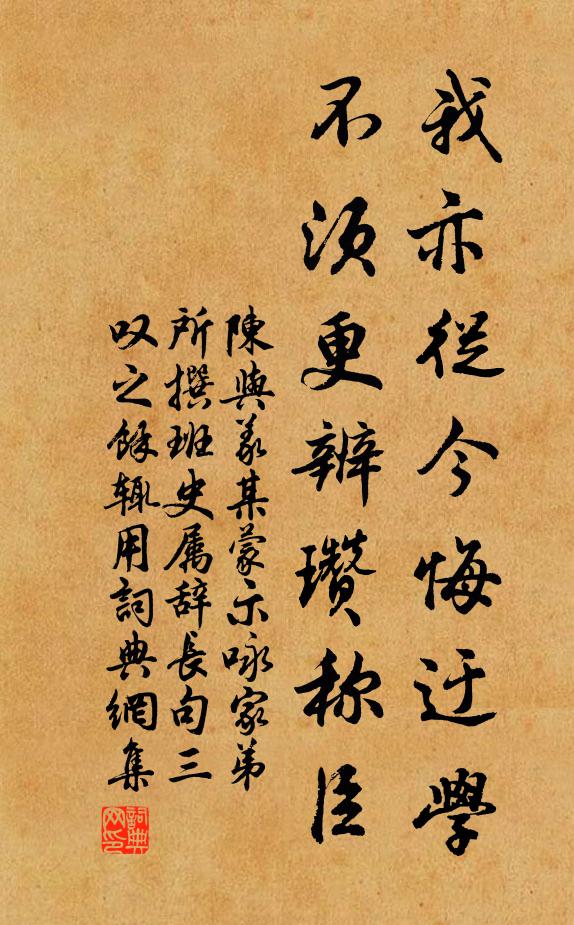 我亦從今悔迂學
不須更辨瓚称臣
陳與義某蒙示咏家弟
所撰班史属辞長句三
叹之餘輒用詞典網集
詞典网印